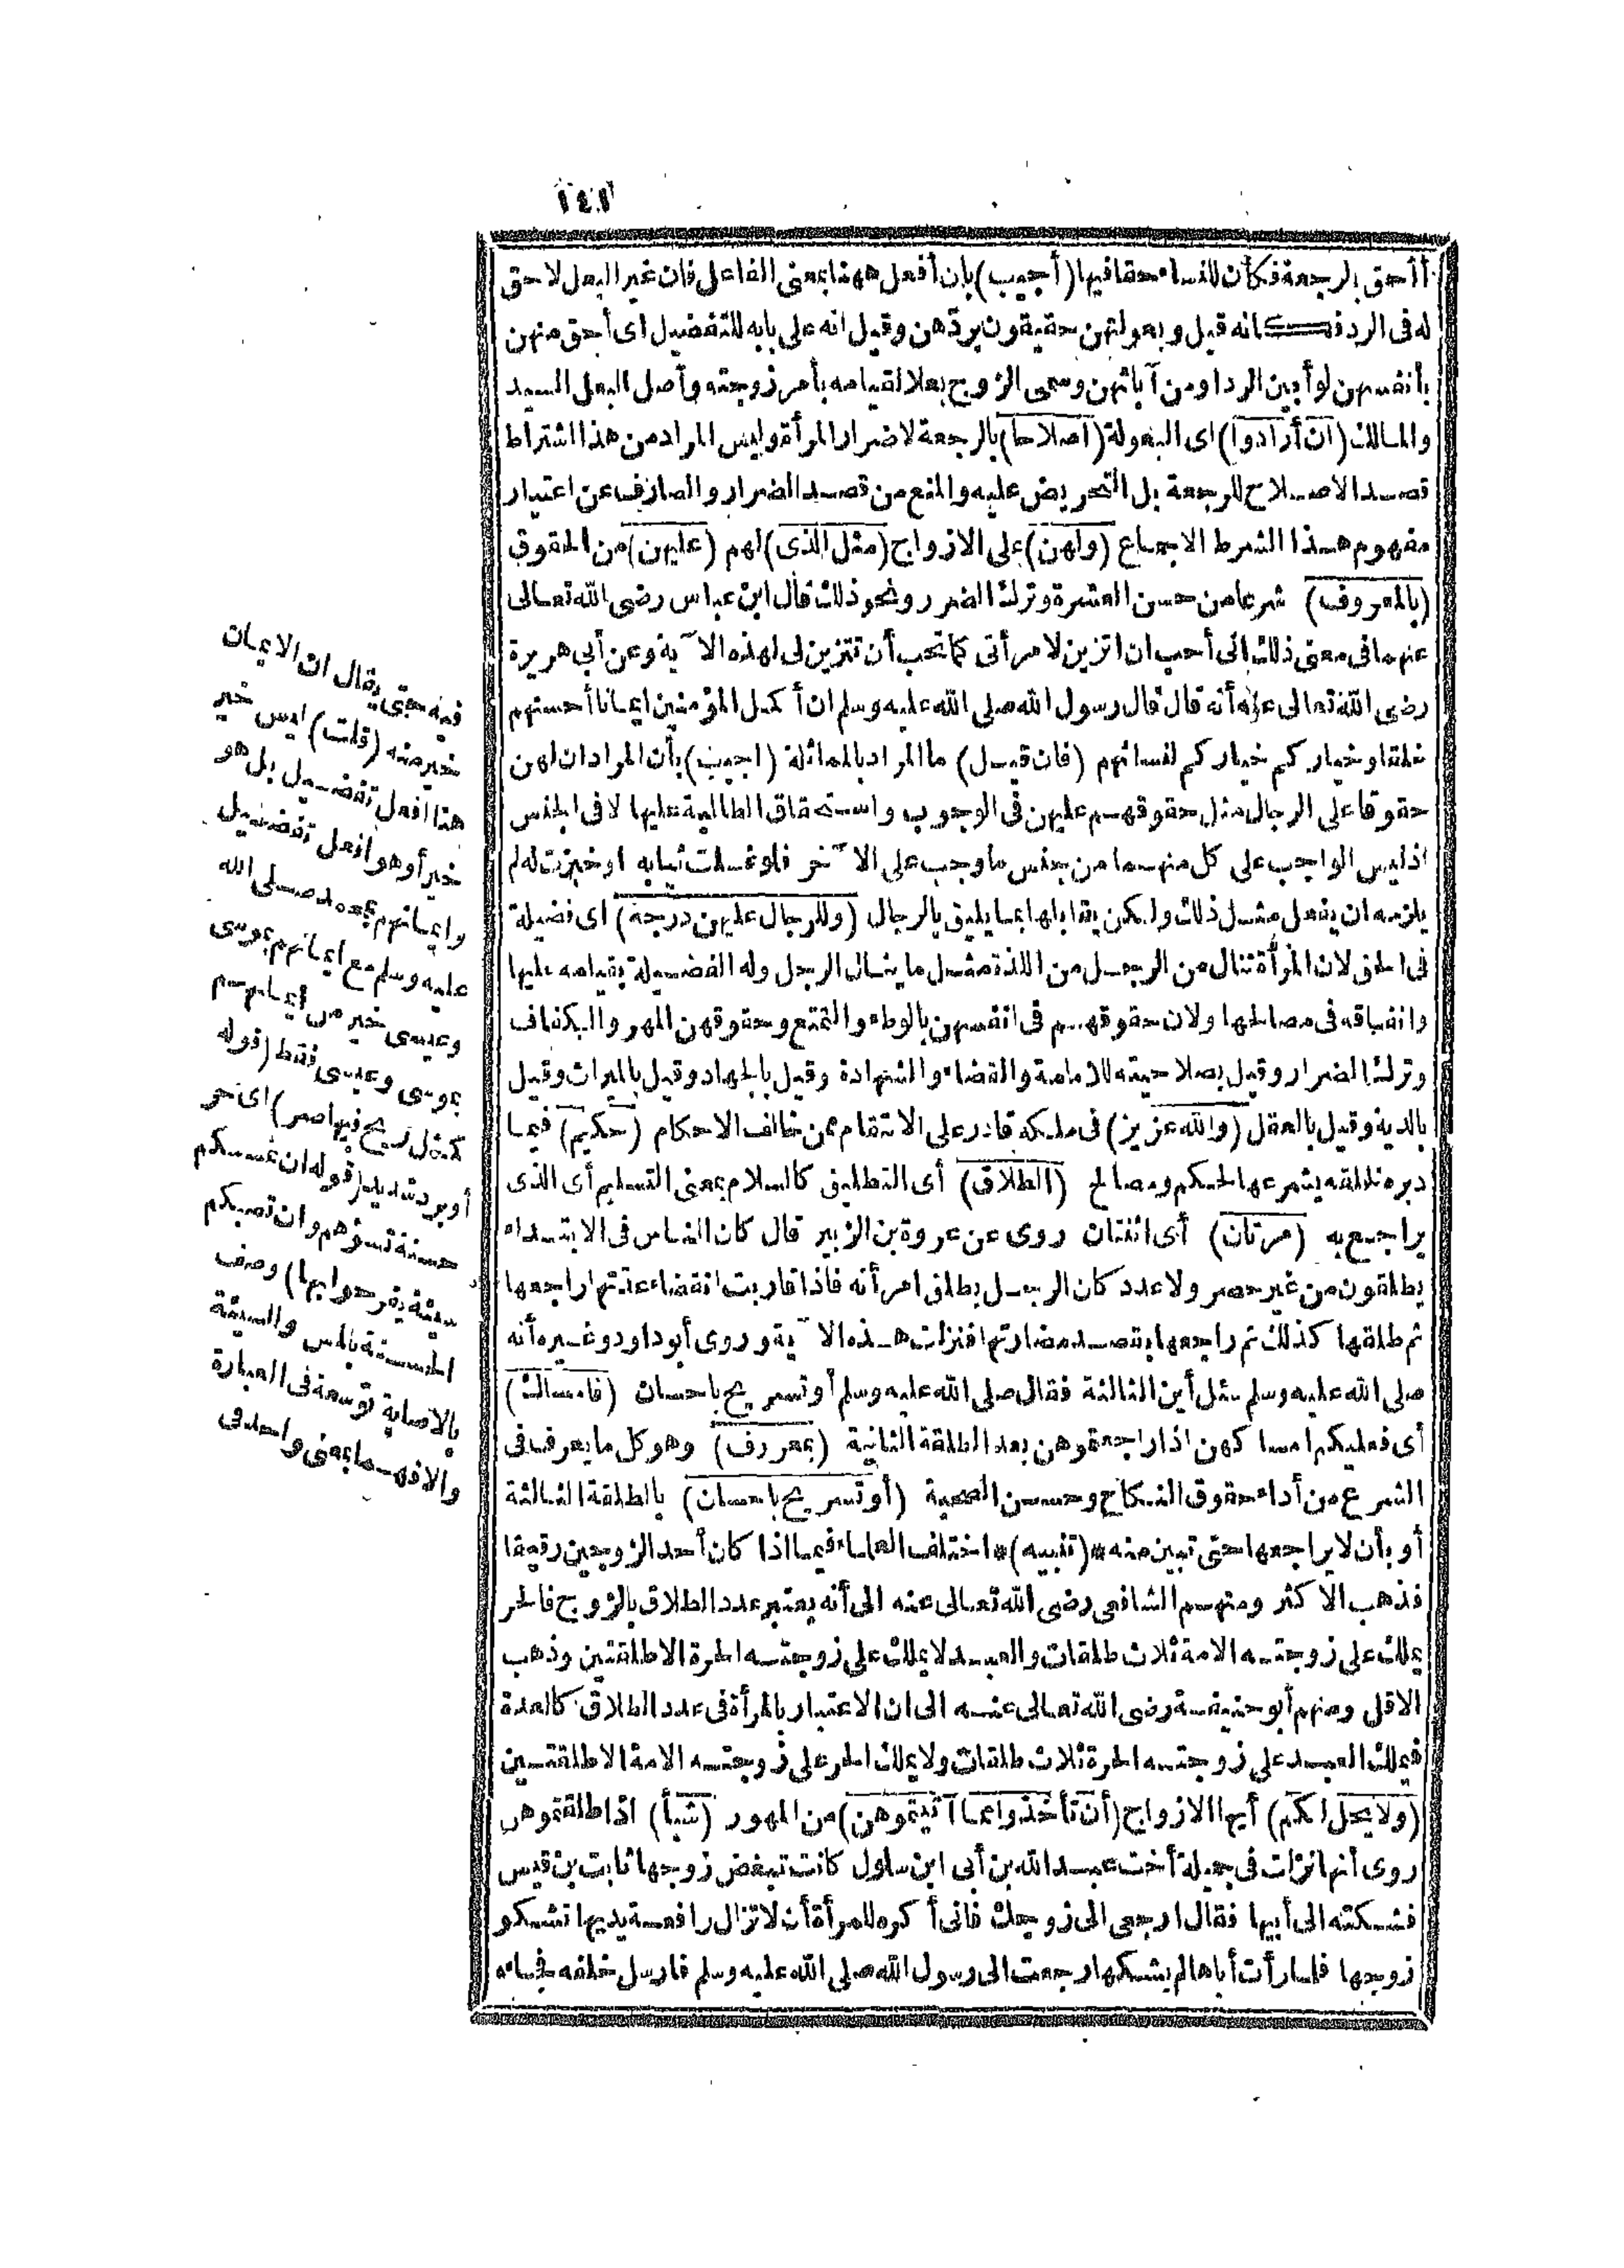 ١٤٨
أحق بالرجعة فكأن للنساء حقا فيها (أجيب) بأن أفعل ههنا بمعنى الفاعل فان غير البعل لا حق
له فى الرد فكانه قيل وبعولتهن حقيقون بردّهن وقيل انه على بابه للتفضيل اى أحق منهن
بأنفسهن لو أبين الرد او من آبائهن وسمى الزوج بعلا لقيامه بأمر زوجته وأصل البعل السيد
والمالك (ان أرادوا) اى البعولة (اصلاحا) بالرجعة لا ضرار المرأة وليس المراد من هذا اشتراط
قصد الاصلاح للرجعة بل التحريض عليه والمنع من قصد الضرار والصارف عن اعتبار
مفهوم هذا الشرط الاجماع (ولهن) على الازواج (مثل الذى) لهم (عليهن) من الحقوق
(بالمعروف) شرعا من حسن العشرة وترك الضرر ونحو ذلك قال ابن عباس رضى الله تعالى
عنهما فى معنى ذلك انى أحب ان اتزين لامرأتى كما تحب أن تتزين لى لهذه الآية وعن أبى هريرة
رضى الله تعالى عنه أنه قال قال رسول الله صلى الله عليه وسلم ان أكمل المؤمنين ايمانا أحسنهم
خلقا وخياركم خياركم لنسائهم (فان قيل) ما المراد بالمماثلة (اجيب) بأن المراد ان لهن
حقوقا على الرجال مثل حقوقهم عليهن فى الوجوب واستحقاق المطالبة عليها لا فى الجنس
اذ ليس الواجب على كل منهما من جنس ما وجب على الآخر فلو غسلت ثيابه او خبزت له لم
يلزمه ان يفعل مثل ذلك ولكن يقابلها بما يليق بالرجال (وللرجال عليهن درجة) اى فضيلة
فى الحق لان المرأة تنال من الرجل من اللذة مثل ما ينال الرجل وله الفضيلة بقيامه عليها
وانفاقه فى مصالحها ولان حقوقهم فى انفسهن بالوطء والتمتع وحقوقهن المهر والكفاف
وترك الضرار وقيل بصلاحيته للامامة والقضاء والشهادة وقيل بالجهاد وقيل بالميراث وقيل
بالدية وقيل بالعقل (والله عزيز) فى ملكه قادر على الانتقام ممن خالف الاحكام (حكيم) فيما
دبره لخلقه يشرعها لحكم ومصالح (الطلاق) أى التطليق كالسلام بمعنى التسليم أى الذى
يراجع به (مرتان) أى اثنتان روى عن عروة بن الزبير قال كان الناس فى الابتداء
يطلقون من غير حصر ولا عدد كان الرجل يطلق امرأته فاذا قاربت انقضاء عدّتها راجعها
ثم طلقها كذلك ثم راجعها بقصد مضارتها فنزلت هذه الآية وروى أبو داود وغيره أنه
صلى الله عليه وسلم سئل أين الثالثة فقال صلى الله عليه وسلم أو تسريح باحسان (فامساك)
أى فعليكم امساكهن اذا راجعتموهن بعد الطلقة الثانية (بمعروف) وهو كل ما يعرف فى
الشرع من أداء حقوق النكاح وحسن الصحبة (أو تسريح باحسان) بالطلقة الثالثة
أو بأن لا يراجعها حتى تبين منه *(تنبيه)* اختلف العلماء فيما اذا كان أحد الزوجين رقيقا
فذهب الاكثر ومنهم الشافعى رضى الله تعالى عنه الى أنه يعتبر عدد الطلاق بالزوج فالحر
يملك على زوجته الامة ثلاث طلقات والعبد لا يملك على زوجته الحرة الا طلقتين وذهب
الاقل ومنهم أبو حنيفة رضى الله تعالى عنه الى ان الاعتبار بالمرأة فى عدد الطلاق كالعدة
فيملك العبد على زوجته الحرة ثلاث طلقات ولا يملك الحر على زوجته الامة الا طلقتين
(ولا يحل لكم) أيها الازواج (أن تأخذوا مما آتيتموهن) من المهور (شيأ) اذا طلقتموهن
روى أنها نزلت فى جميلة أخت عبد الله بن أبى ابن سلول كانت تبغض زوجها ثابت بن قيس
فشكته الى أبيها فقال ارجعى الى زوجك فانى أكره للمرأة أن لا تزال رافعة يديها تشكو
زوجها فلما رأت أباها لم يشكها رجعت الى رسول الله صلى الله عليه وسلم فارسل خلفه فجاء
فيه حتى يقال ان الايمان
خير منه (قلت) ليس خير
هنا افعل تفضيل بل هو
خير أو هو افعل تفضيل
وايمانهم بمحمد صلى الله
عليه وسلم مع ايمانهم بموسى
وعيسى خير من ايمانهم
بموسى وعيسى فقط (قوله
كمثل ريح فيها صر) اى حر
أو برد شديد (قوله ان تمسسكم
حسنة تسؤهم وان تصبكم
سيئة يفرحوا بها) وصف
الحسنة بالمس والسيئة
بالاصابة توسعة فى العبارة
والا فهما بمعنى واحد فى